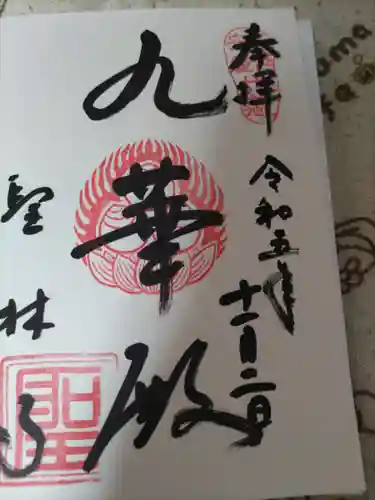 奉拝
令和五年
十一月二日
九華殿
聖林寺
聖